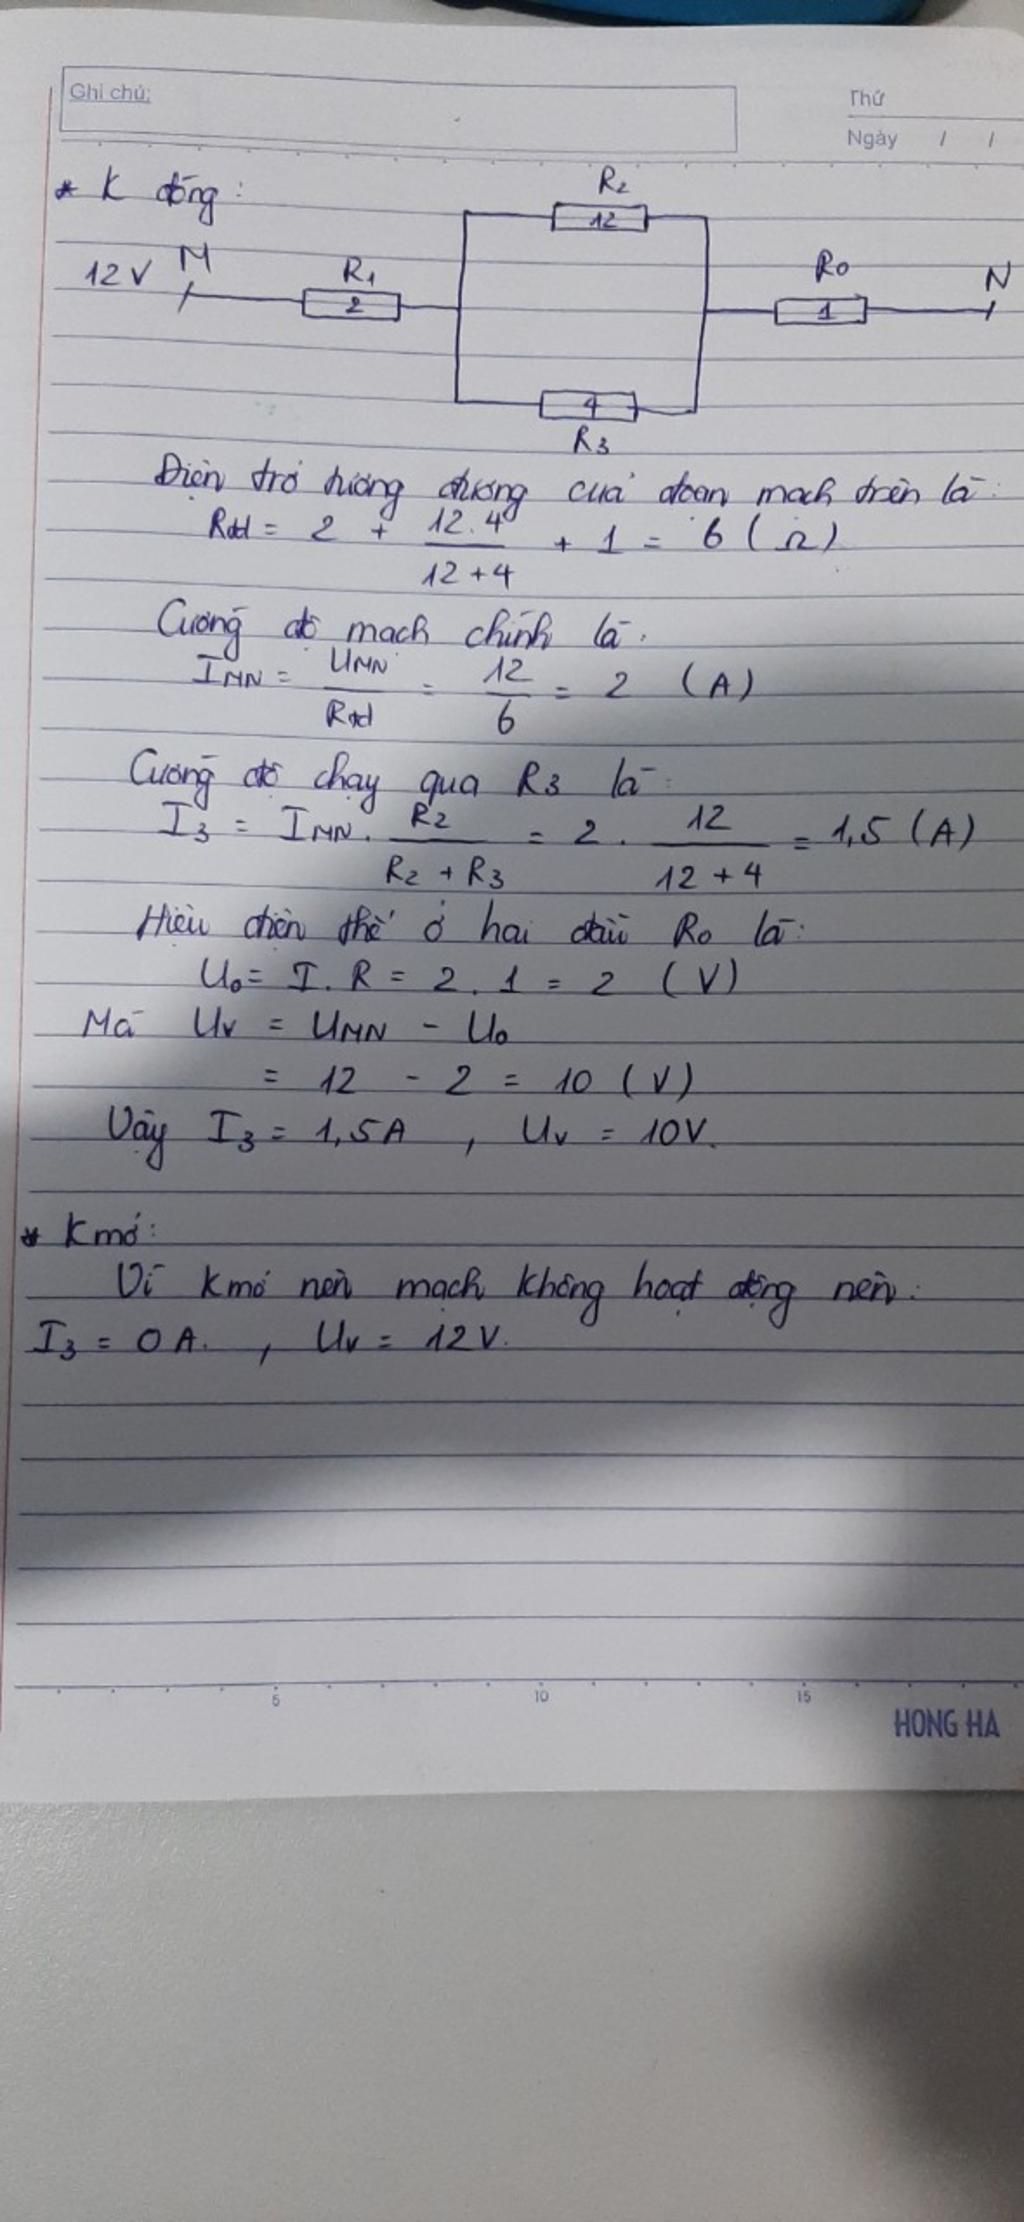 Ghi chú:
Thứ
Ngày / /
* K đóng:
R2
12
12V M
R1
2
R0
1
N
4
R3
Điện trở tương đương của đoạn mạch trên là:
Rtđ = 2 + 12.4 / 12+4 + 1 = 6 (Ω)
Cường độ mạch chính là:
IMN = UMN / Rtđ = 12 / 6 = 2 (A)
Cường độ chạy qua R3 là:
I3 = IMN. R2 / R2 + R3 = 2. 12 / 12+4 = 1,5 (A)
Hiệu điện thế ở hai đầu R0 là:
U0 = I. R = 2. 1 = 2 (V)
Mà Uv = UMN - U0
= 12 - 2 = 10 (V)
Vậy I3 = 1,5A , Uv = 10V.
* K mở:
Vì K mở nên mạch không hoạt động nên:
I3 = 0A. , Uv = 12V.
5 10 15
HONG HA